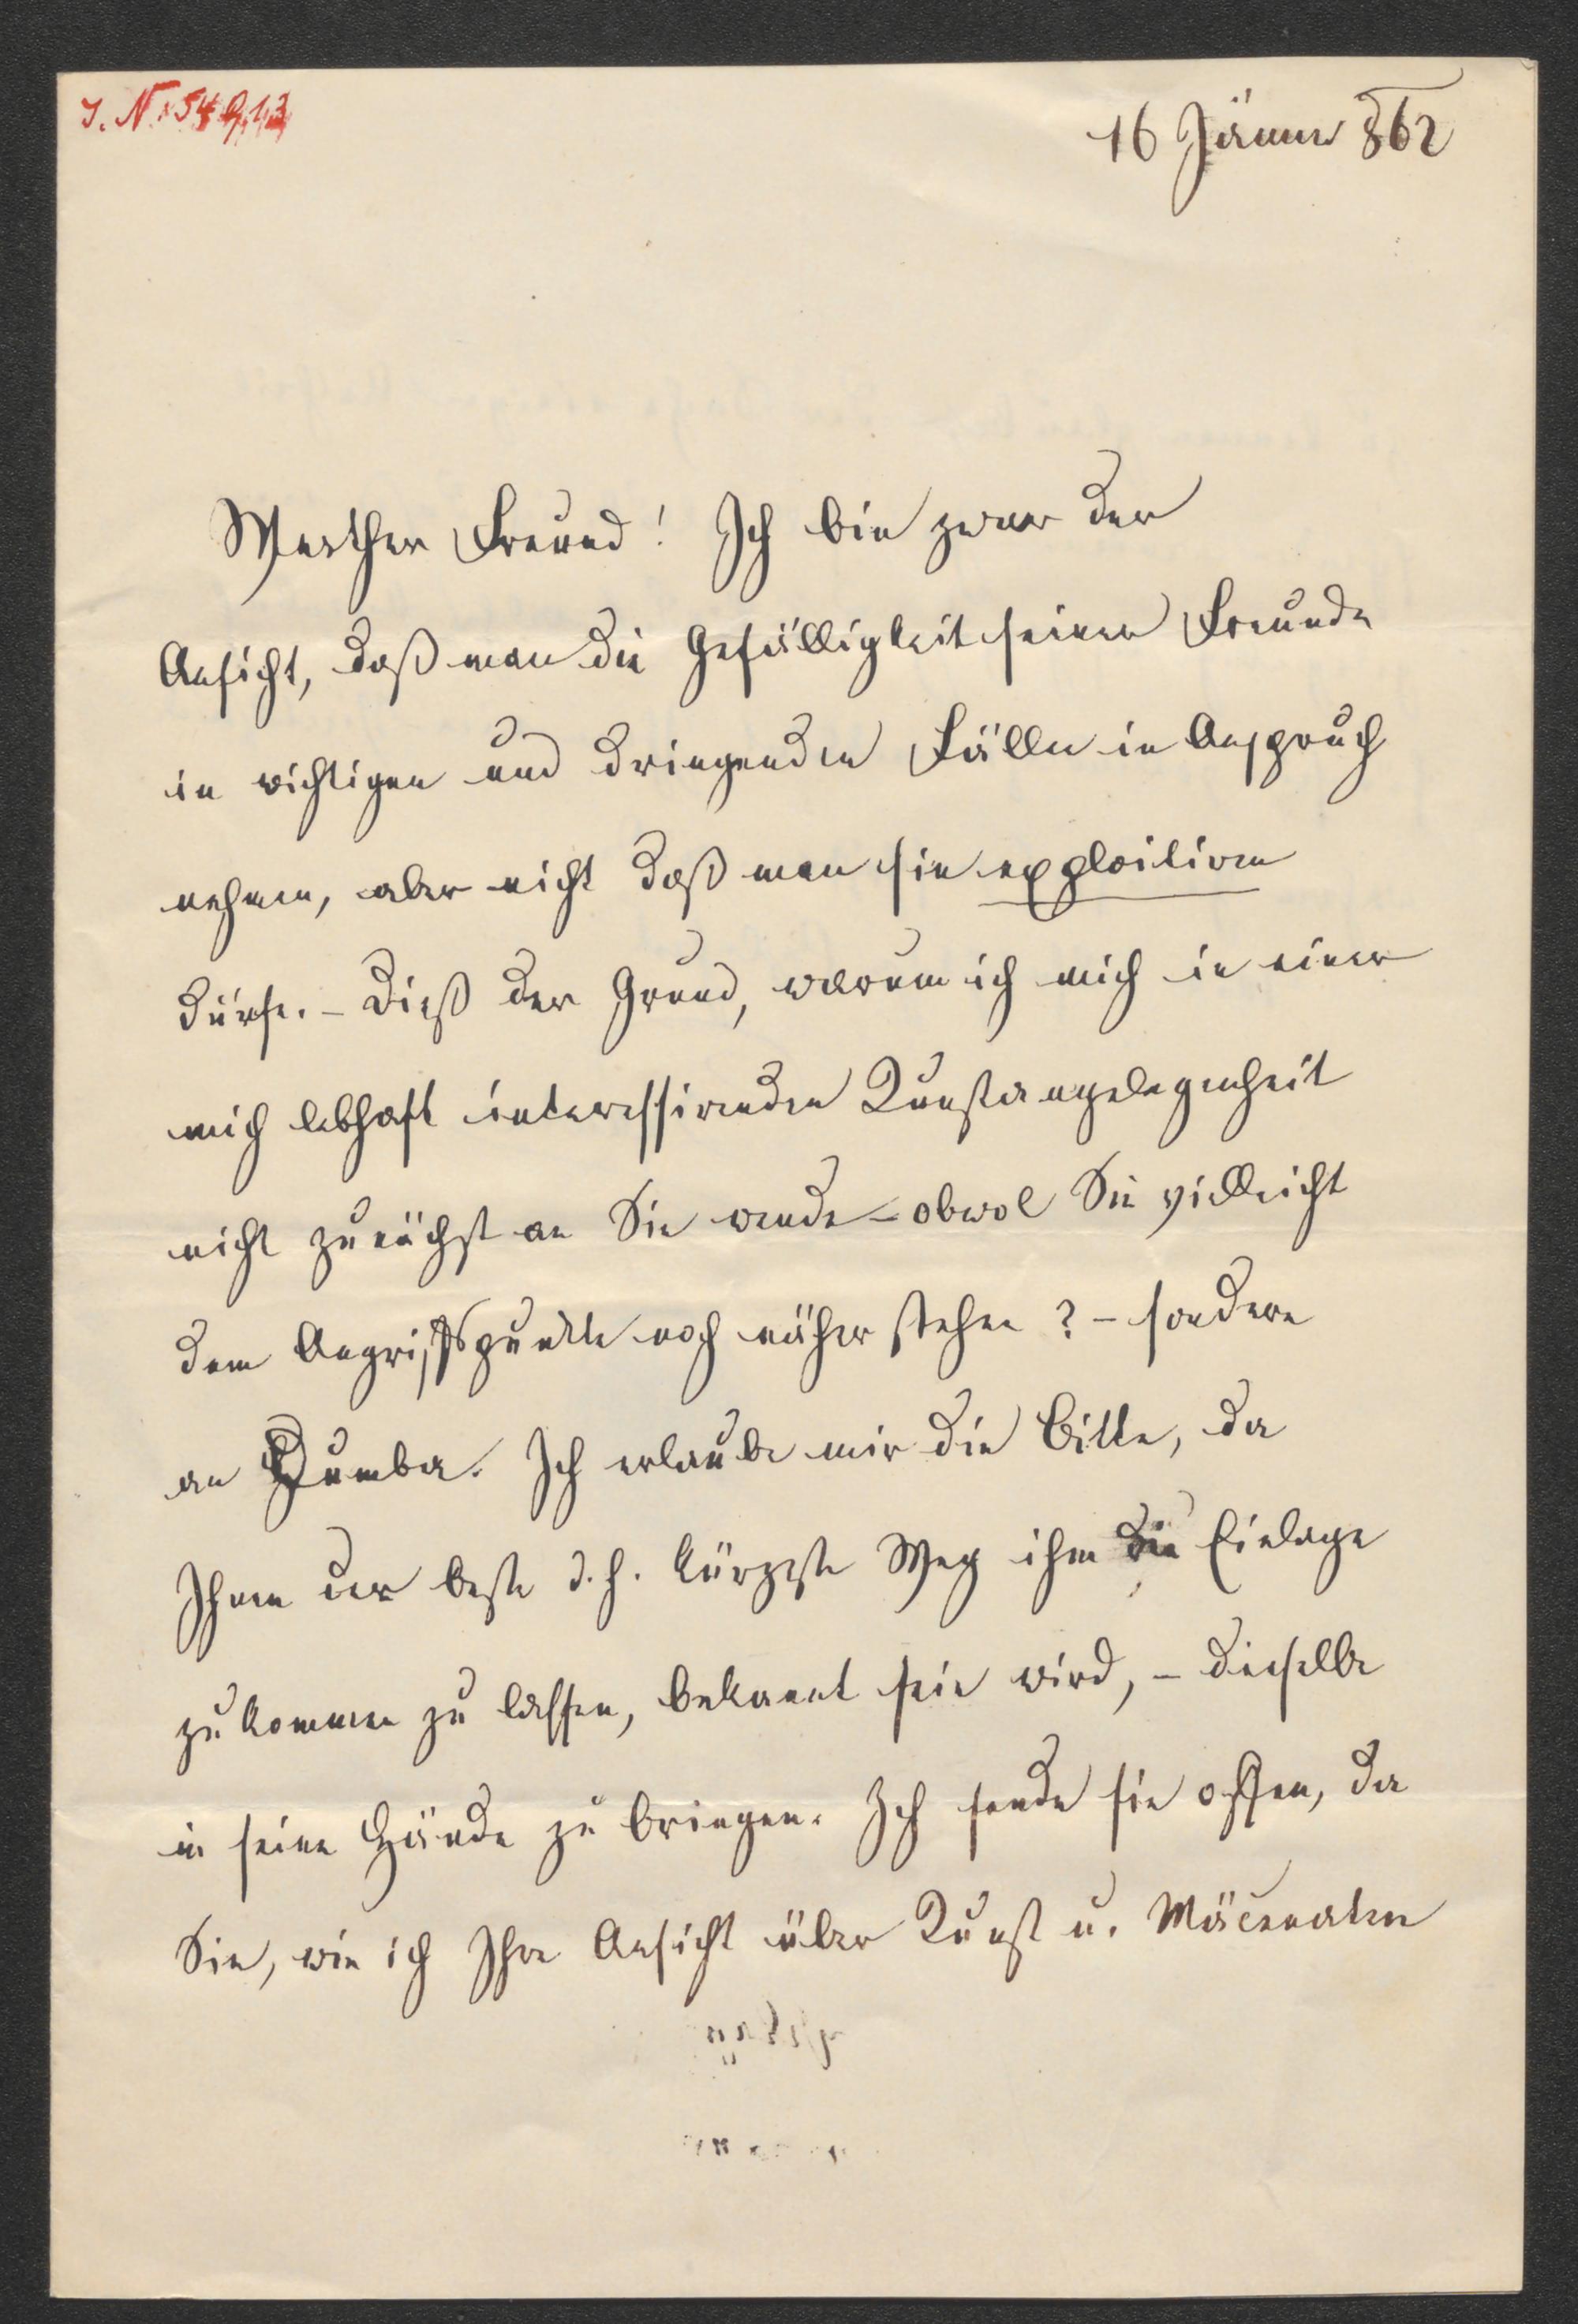 16 Jänner 862
Werther Freund! Ich bin zwar der
Ansicht, daß man die Gefälligkeit seiner Freunde
in wichtigen und dringenden Fällen in Anspruch
nehmen, aber nicht daß man sie exploitiren
dürfe. – Dieß der Grund, warum ich mich in einer
mich lebhaft interessirenden Kunstangelegenheit
nicht zunächst an Sie wende – obwol Sie vielleicht
dem Angriffspunkte noch näher stehen? – sondern
an Dumba. Ich erlaube mir die Bitte, da
Ihnen der beste d. h. kürzeste Weg ihm die Einlage
zukommen zu lassen, bekannt sein wird, – dieselbe
in seine Hände zu bringen. Ich sende sie offen, da
Sie, wie ich Ihre Ansicht über Kunst u. Mäcenaten